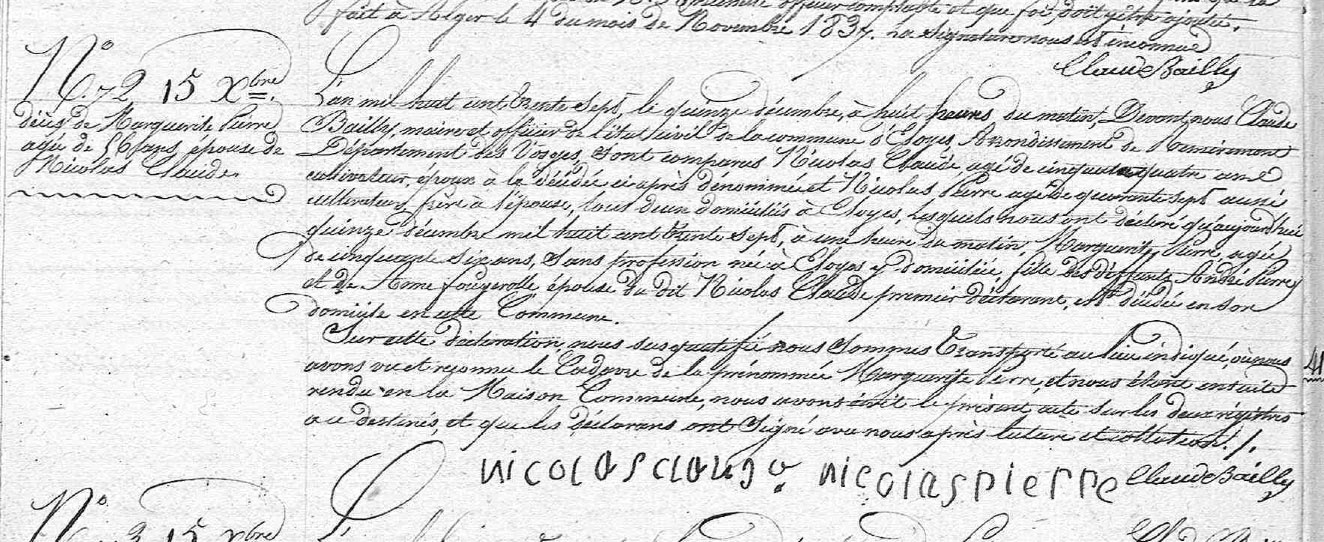 fait à Alger le 4 du mois de Novembre 1837. La signature nous est inconnue
Claude Bailly
N° 72 15 Xbre.
décès de Marguerite Pierre
agée de 56 ans, épouse de
Nicolas Claude.
L'an mil huit cent trente sept, le quinze décembre, à huit heures du matin, Devant nous Claude
Bailly, maire et officier de l'état civil de la commune d'Eloyes, Arrondissement de Remiremont
Département des Vosges, Sont comparus Nicolas Claude, agé de cinquante quatre ans
cultivateur, époux à la décédée ci après dénommée et Nicolas Pierre agé de quarante sept aussi
cultivateur, frère à l'épouse, tous deux domiciliés à Eloyes, lesquels nous ont déclaré qu'aujourd'hui
quinze décembre mil huit cent trente sept, à une heure du matin, Marguerite Pierre, agée
de cinquante six ans, Sans profession née à Eloyes y domiciliée, fille des défunts André Pierre
et de Anne Fougerolle, épouse du dit Nicolas Claude premier déclarant, est décédée en son
domicile en cette Commune.
Sur cette déclaration, nous susqualifié nous Sommes transporté au lieu indiqué, où nous
avons vu et reconnu le Cadavre de la prénommée Marguerite Pierre, et nous étant ensuite
rendu en la Maison Commune, nous avons écrit le présent acte sur les deux régistres
à ce destinés, et que les déclarans ont Signé avec nous après lecture et collation ./.
nicolas claude nicolas pierre Claude Bailly
N° 15 Xbre